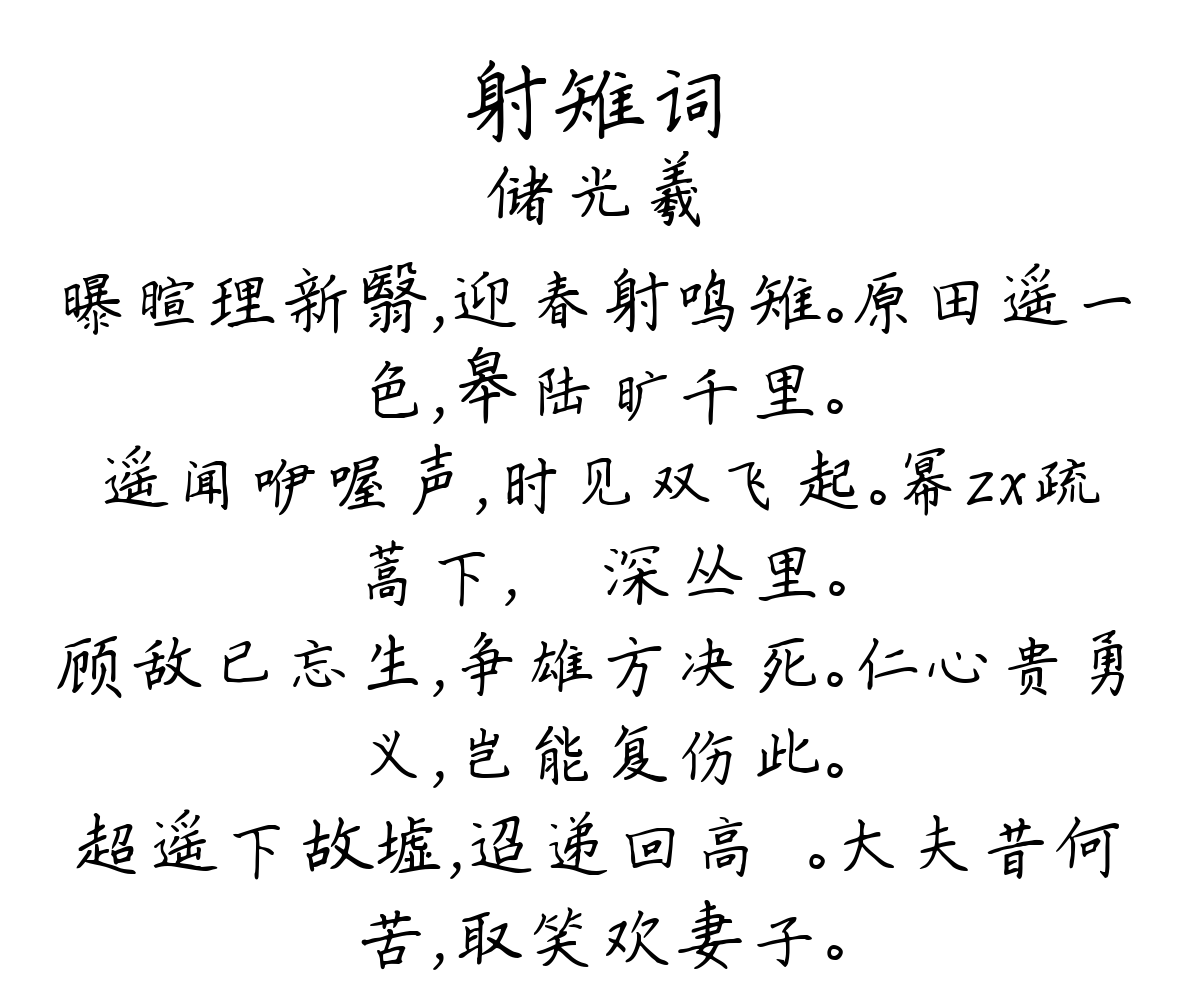 射雉词
储光羲
曝暄理新翳,迎春射鸣雉。原田遥一
色,皋陆旷千里。
遥闻咿喔声,时见双飞起。幂zx疏
蒿下, 深丛里。
顾敌已忘生,争雄方决死。仁心贵勇
义,岂能复伤此。
超遥下故墟,迢递回高 。大夫昔何
苦,取笑欢妻子。